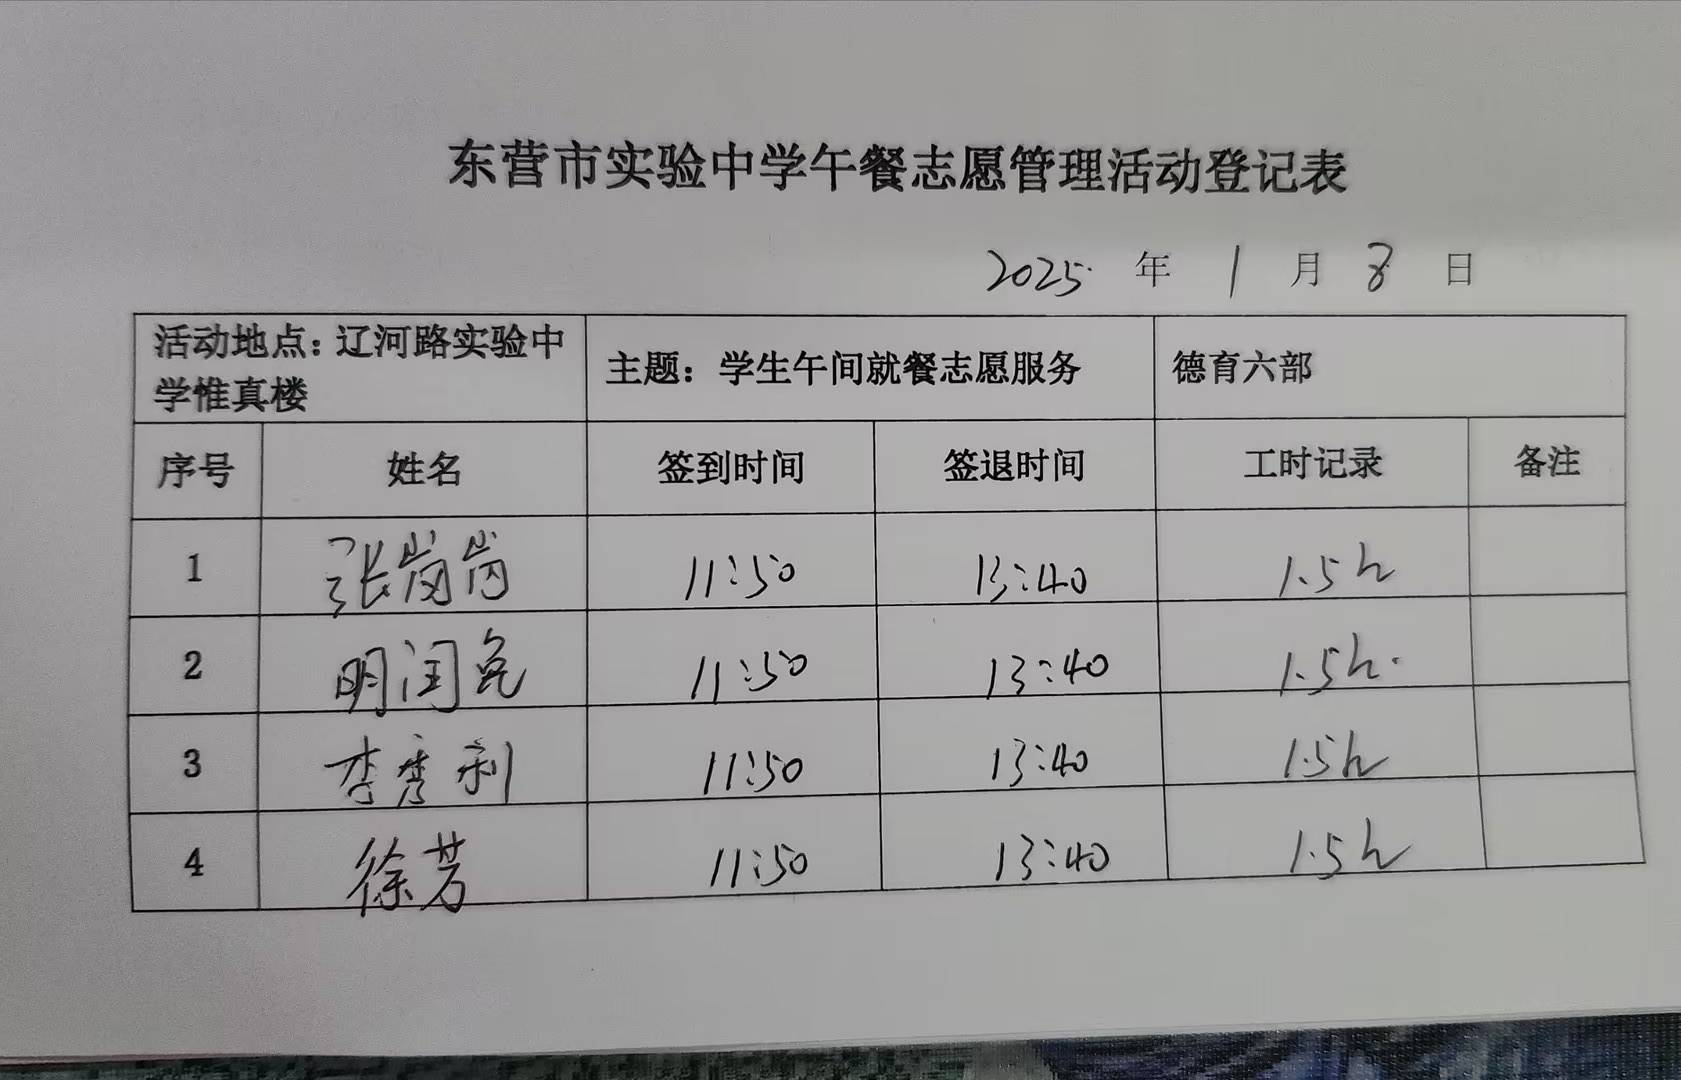 东营市实验中学午餐志愿管理活动登记表
2025 年 1 月 8 日
活动地点：辽河路实验中
学惟真楼
主题：学生午间就餐志愿服务
德育六部
序号 姓名 签到时间 签退时间 工时记录 备注
1 张岗岗 11:50 13:40 1.5h
2 明闰 11:50 13:40 1.5h.
3 李秀利 11:50 13:40 1.5h
4 徐芳 11:50 13:40 1.5h